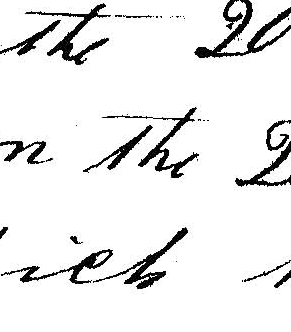 the 20
n the 2
ich